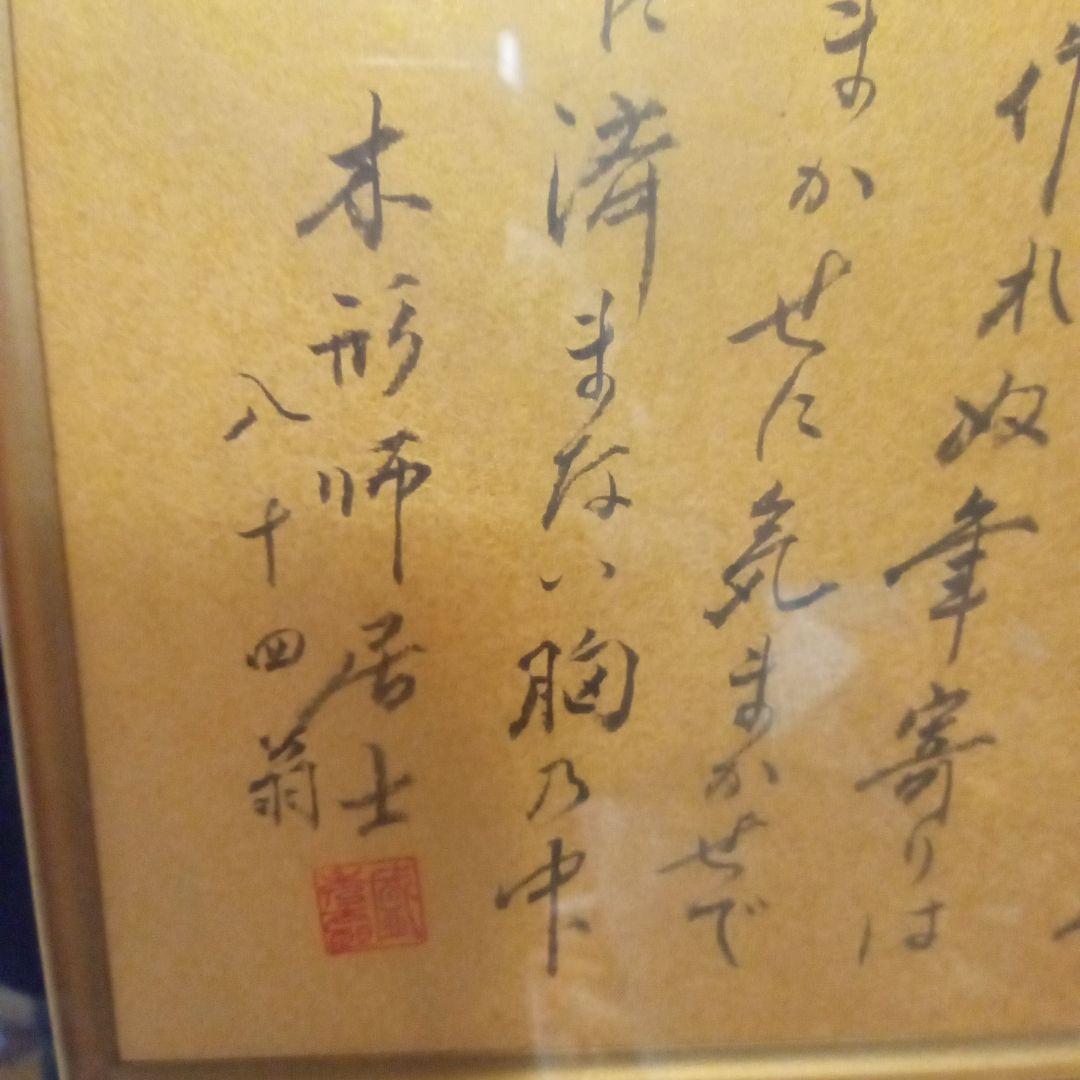 れ奴年寄りは
まかせに気まかせで
に済まない胸乃中
木形師居士
八十四翁